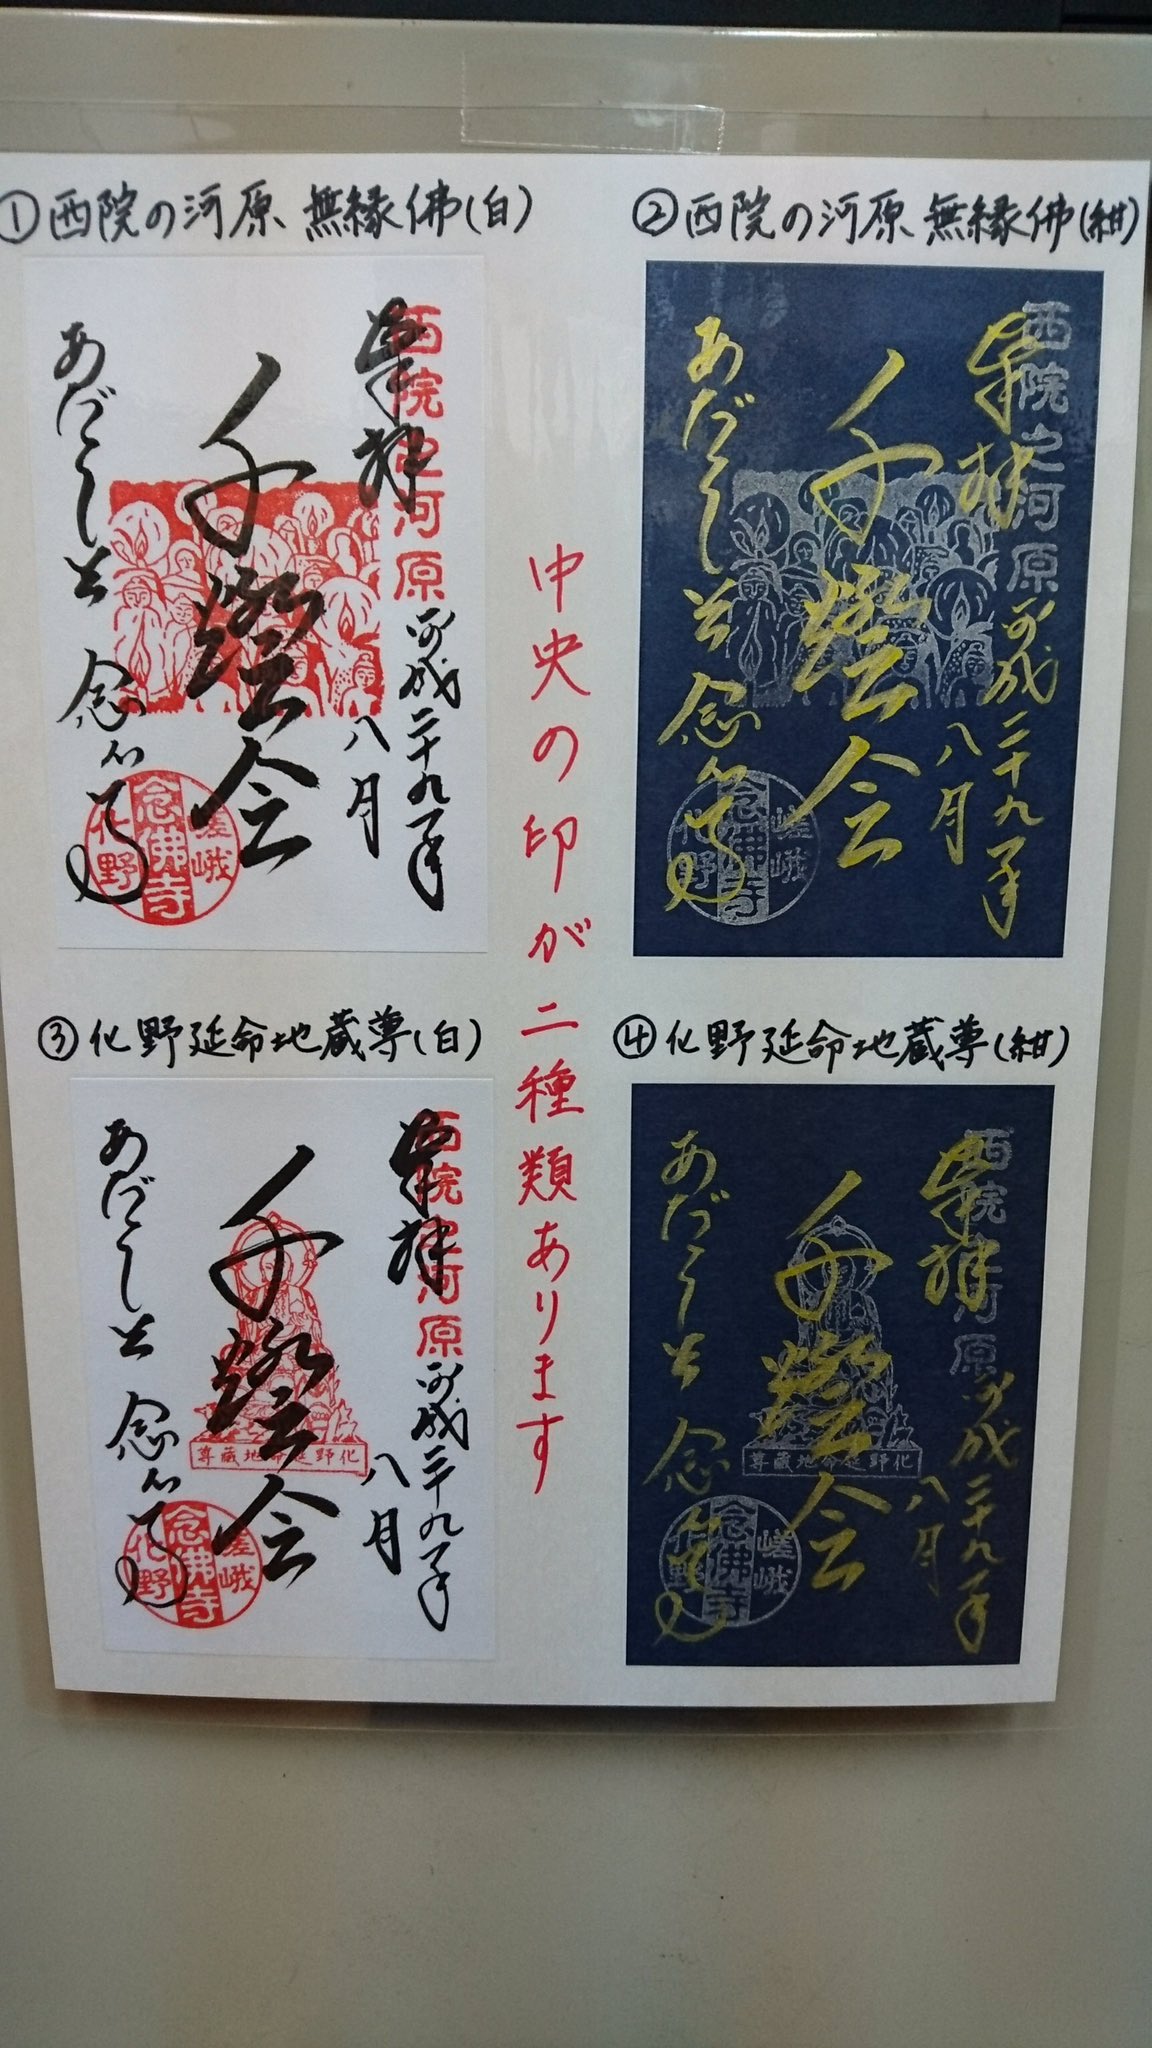 ①西院の河原 無縁佛(白)
奉拝
西院之河原
平成二十九年
八月
千燈会
あだし野
念仏寺
嵯峨
念佛寺
化野
②西院の河原 無縁佛(紺)
奉拝
西院之河原
平成二十九年
八月
千燈会
あだし野
念仏寺
嵯峨
念佛寺
化野
中央の印が二種類あります
③化野延命地蔵尊(白)
奉拝
西院之河原
平成二十九年
八月
千燈会
化野延命地蔵尊
あだし野
念仏寺
嵯峨
念佛寺
化野
④化野延命地蔵尊(紺)
奉拝
西院之河原
平成二十九年
八月
千燈会
化野延命地蔵尊
あだし野
念仏寺
嵯峨
念佛寺
化野